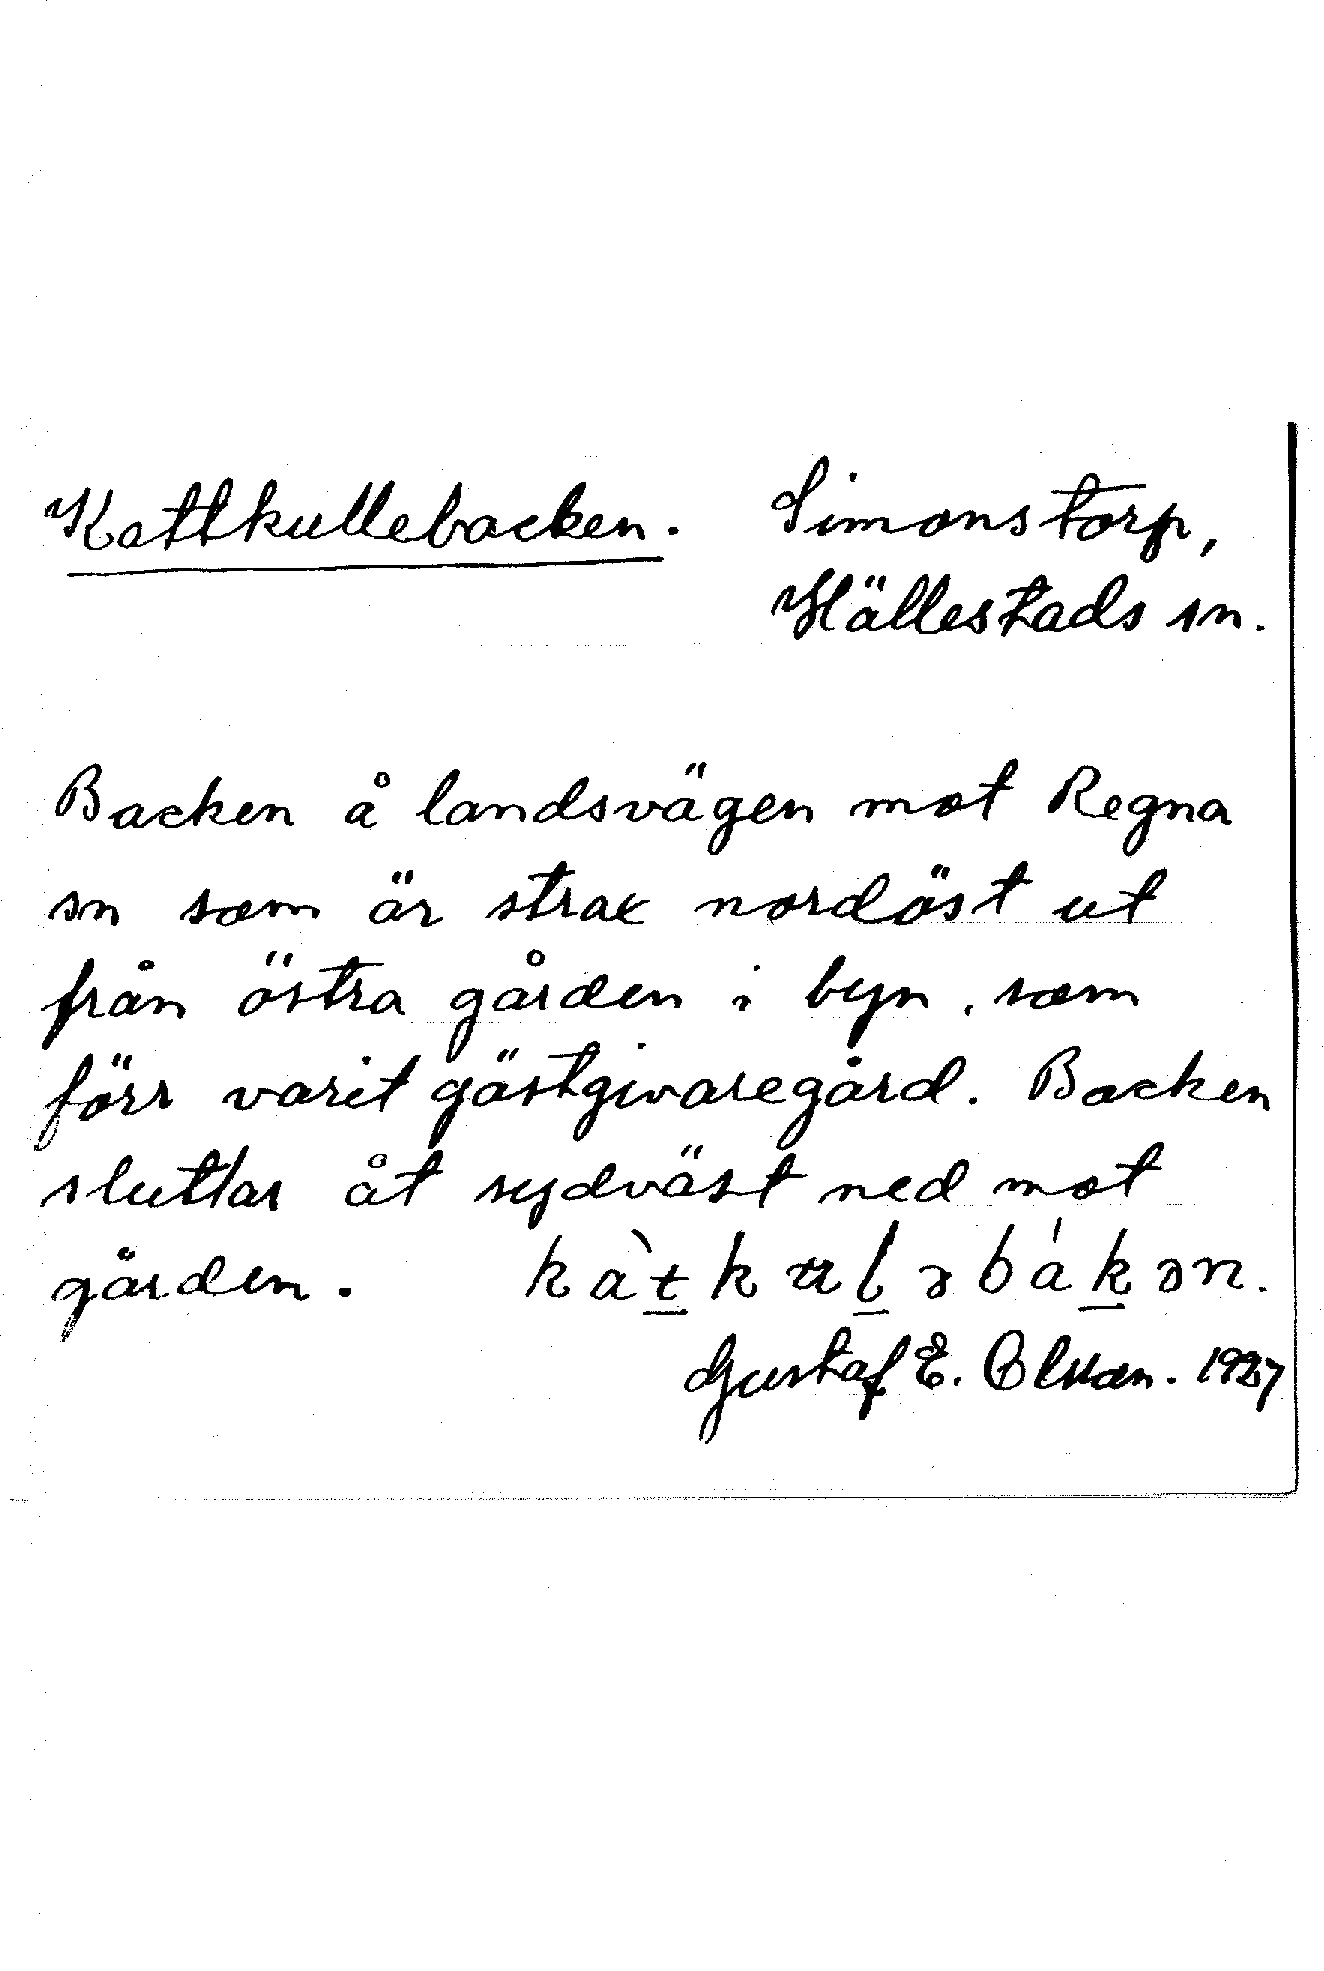 Kattkullebacken. Simonstorp,
Hällestads sn.
Backen å landsvägen mot Regna
sn som är strax nordöst ut
från östra gården i byn, som
förr varit gästgivaregård. Backen
sluttar åt sydväst ned mot
gården. kàt̲kʉl̲əbák̲ən.
Gustaf E. Olsson. 1927